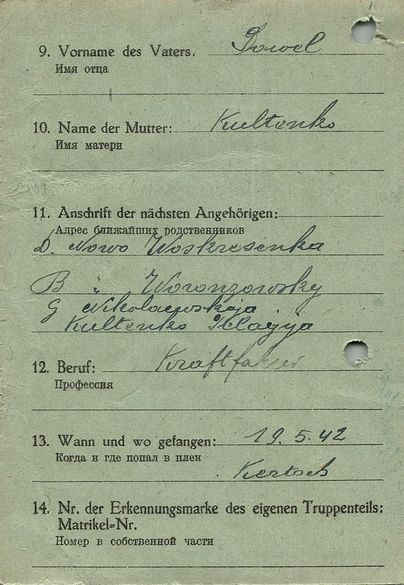 9. Vorname des Vaters. Pawel
Имя отца
10. Name der Mutter: Kultenko
Имя матери
11. Anschrift der nächsten Angehörigen:
Адрес ближайших родственников
D. Nowo Woskresenka
B " Woronzowsky
G Nikolaewskaja
Kultenko
12. Beruf: Kraftfahrer
Профессия
13. Wann und wo gefangen: 19.5.42
Когда и где попал в плен
Kertsch
14. Nr. der Erkennungsmarke des eigenen Truppenteils:
Matrikel=Nr.
Номер в собственной части